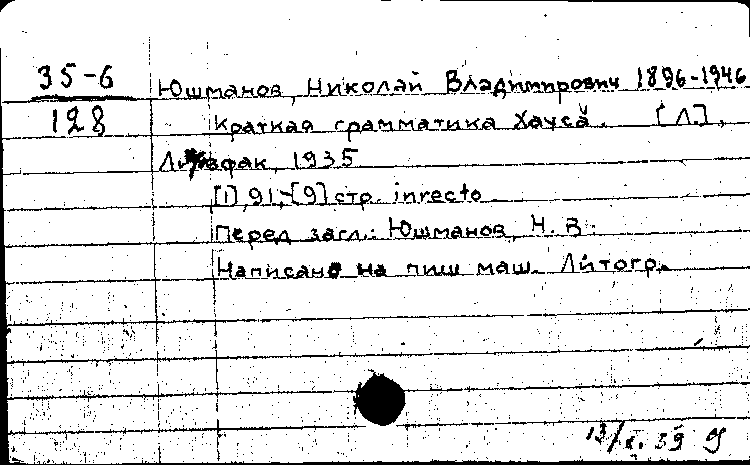 35-6
128
Юшманов, Николай Владимирович 1896-1946
Краткая грамматика Хауса. [Л.],
1935
[1], 91, [9] стр. in recto
Перед загл.: Юшманов, Н. В.
Написано на пиш маш. Литогр.
39